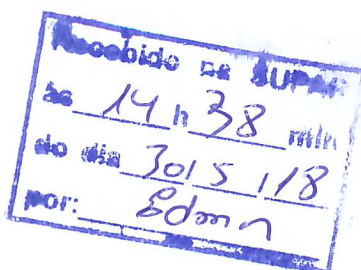 Recebido na SUPAR
às 14 h 38 min
do dia 30/5/18
por: Edman